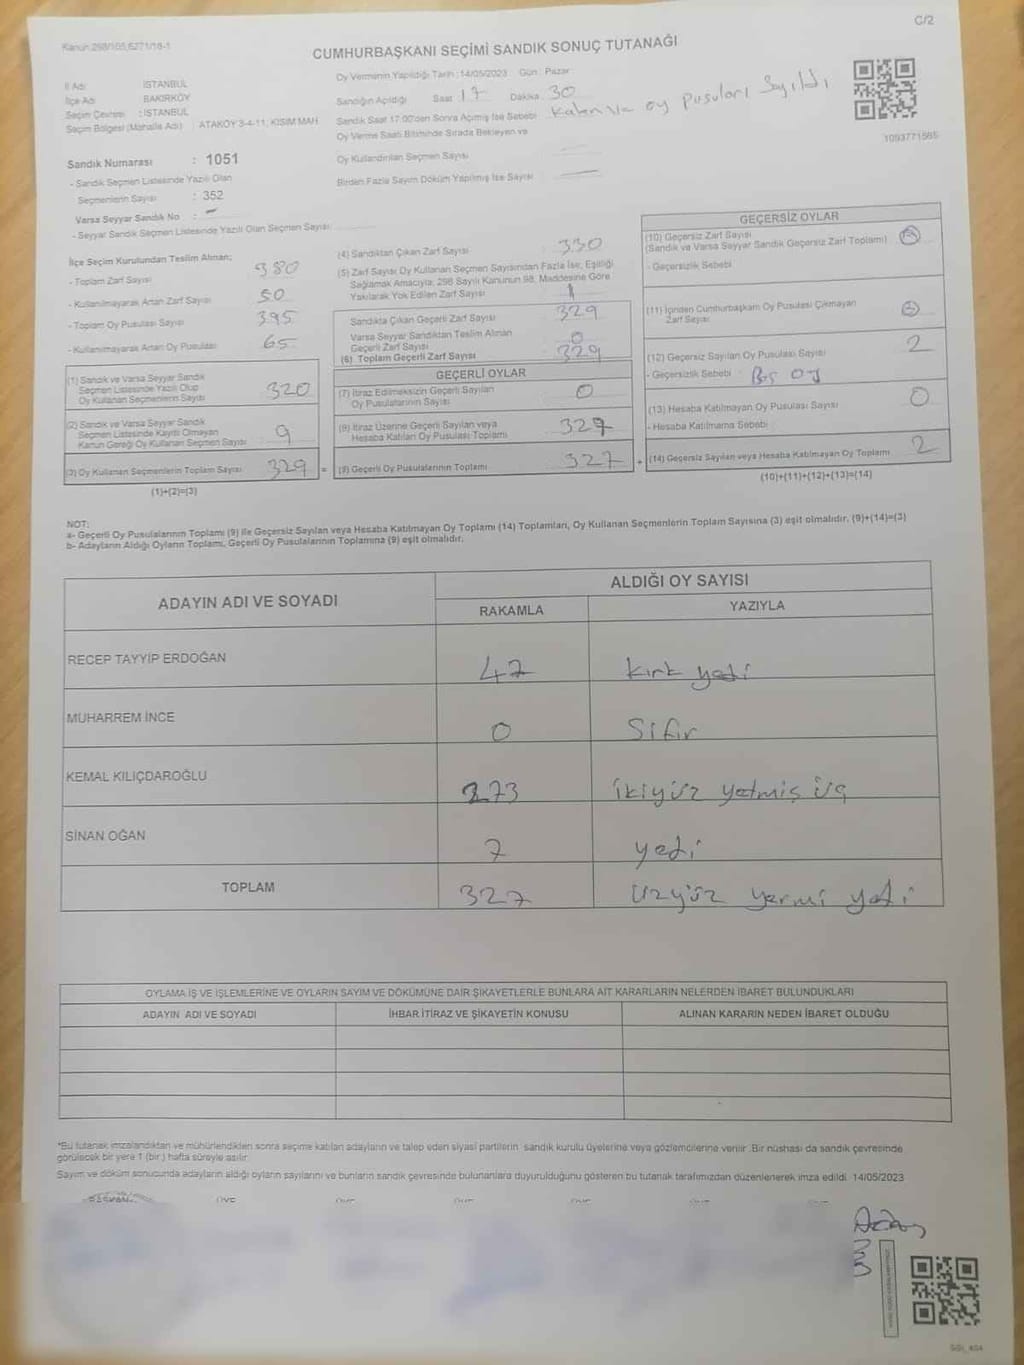 C/2
Kanun:298/105,6271/18-1
CUMHURBAŞKANI SEÇİMİ SANDIK SONUÇ TUTANAĞI
İl Adı : İSTANBUL
İlçe Adı : BAKIRKÖY
Seçim Çevresi : İSTANBUL
Seçim Bölgesi (Mahalle Adı) : ATAKÖY 3-4-11. KISIM MAH.
Oy Vermenin Yapıldığı Tarih :14/05/2023 Gün : Pazar
Sandığın Açıldığı Saat 17 Dakika 30
Sandık Saat 17:00'den Sonra Açılmış İse Sebebi Kalan ve oy pusuları Sayıldı
Oy Verme Saati Bitiminde Sırada Bekleyen ve
Oy Kullandırılan Seçmen Sayısı
Birden Fazla Sayım Döküm Yapılmış İse Sayısı
1093771585
Sandık Numarası : 1051
- Sandık Seçmen Listesinde Yazılı Olan
Seçmenlerin Sayısı : 352
Varsa Seyyar Sandık No : -
- Seyyar Sandık Seçmen Listesinde Yazılı Olan Seçmen Sayısı:
İlçe Seçim Kurulundan Teslim Alınan;
- Toplam Zarf Sayısı 380
- Kullanılmayarak Artan Zarf Sayısı 50
- Toplam Oy Pusulası Sayısı 395
- Kullanılmayarak Artan Oy Pusulası 65
(1) Sandık ve Varsa Seyyar Sandık
Seçmen Listesinde Yazılı Olup
Oy Kullanan Seçmenlerin Sayısı 320
(2) Sandık ve Varsa Seyyar Sandık
Seçmen Listesinde Kayıtlı Olmayan
Kanun Gereği Oy Kullanan Seçmen Sayısı 9
(3) Oy Kullanan Seçmenlerin Toplam Sayısı 329 =
(1)+(2)=(3)
(4) Sandıktan Çıkan Zarf Sayısı 330
(5) Zarf Sayısı Oy Kullanan Seçmen Sayısından Fazla İse, Eşitliği
Sağlamak Amacıyla; 298 Sayılı Kanunun 98. Maddesine Göre
Yakılarak Yok Edilen Zarf Sayısı 1
Sandıkta Çıkan Geçerli Zarf Sayısı 329
Varsa Seyyar Sandıktan Teslim Alınan
Geçerli Zarf Sayısı 0
(6) Toplam Geçerli Zarf Sayısı 329
GEÇERLİ OYLAR
(7) İtiraz Edilmeksizin Geçerli Sayılan
Oy Pusulalarının Sayısı 0
(8) İtiraz Üzerine Geçerli Sayılan veya
Hesaba Katılan Oy Pusulası Toplamı 327
(9) Geçerli Oy Pusulalarının Toplamı 327 +
GEÇERSİZ OYLAR
(10) Geçersiz Zarf Sayısı
(Sandık ve Varsa Seyyar Sandık Geçersiz Zarf Toplamı)
- Geçersizlik Sebebi
(11) İçinden Cumhurbaşkanı Oy Pusulası Çıkmayan
Zarf Sayısı
(12) Geçersiz Sayılan Oy Pusulası Sayısı 2
- Geçersizlik Sebebi : Boş oy
(13) Hesaba Katılmayan Oy Pusulası Sayısı 0
- Hesaba Katılmama Sebebi
(14) Geçersiz Sayılan veya Hesaba Katılmayan Oy Toplamı 2
(10)+(11)+(12)+(13)=(14)
NOT:
a- Geçerli Oy Pusulalarının Toplamı (9) ile Geçersiz Sayılan veya Hesaba Katılmayan Oy Toplamı (14) Toplamları, Oy Kullanan Seçmenlerin Toplam Sayısına (3) eşit olmalıdır. (9)+(14)=(3)
b- Adayların Aldığı Oyların Toplamı, Geçerli Oy Pusulalarının Toplamına (9) eşit olmalıdır.
ADAYIN ADI VE SOYADI
ALDIĞI OY SAYISI
RAKAMLA YAZIYLA
RECEP TAYYİP ERDOĞAN 47 kırk yedi
MUHARREM İNCE 0 Sıfır
KEMAL KILIÇDAROĞLU 273 ikiyüz yetmiş üç
SİNAN OĞAN 7 yedi
TOPLAM 327 üzyüz yermi yedi
OYLAMA İŞ VE İŞLEMLERİNE VE OYLARIN SAYIM VE DÖKÜMÜNE DAİR ŞİKAYETLERLE BUNLARA AİT KARARLARIN NELERDEN İBARET BULUNDUKLARI
ADAYIN ADI VE SOYADI İHBAR İTİRAZ VE ŞİKAYETİN KONUSU ALINAN KARARIN NEDEN İBARET OLDUĞU
*Bu tutanak imzalandıktan ve mühürlendikten sonra seçime katılan adayların ve talep eden siyasi partilerin sandık kurulu üyelerine veya gözlemcilerine verilir. Bir nüshası da sandık çevresinde
görülecek bir yere 1 (bir) hafta süreyle asılır.
Sayım ve döküm sonucunda adayların aldığı oyların sayılarını ve bunların sandık çevresinde bulunanlara duyurulduğunu gösteren bu tutanak tarafımızdan düzenlenerek imza edildi. 14/05/2023